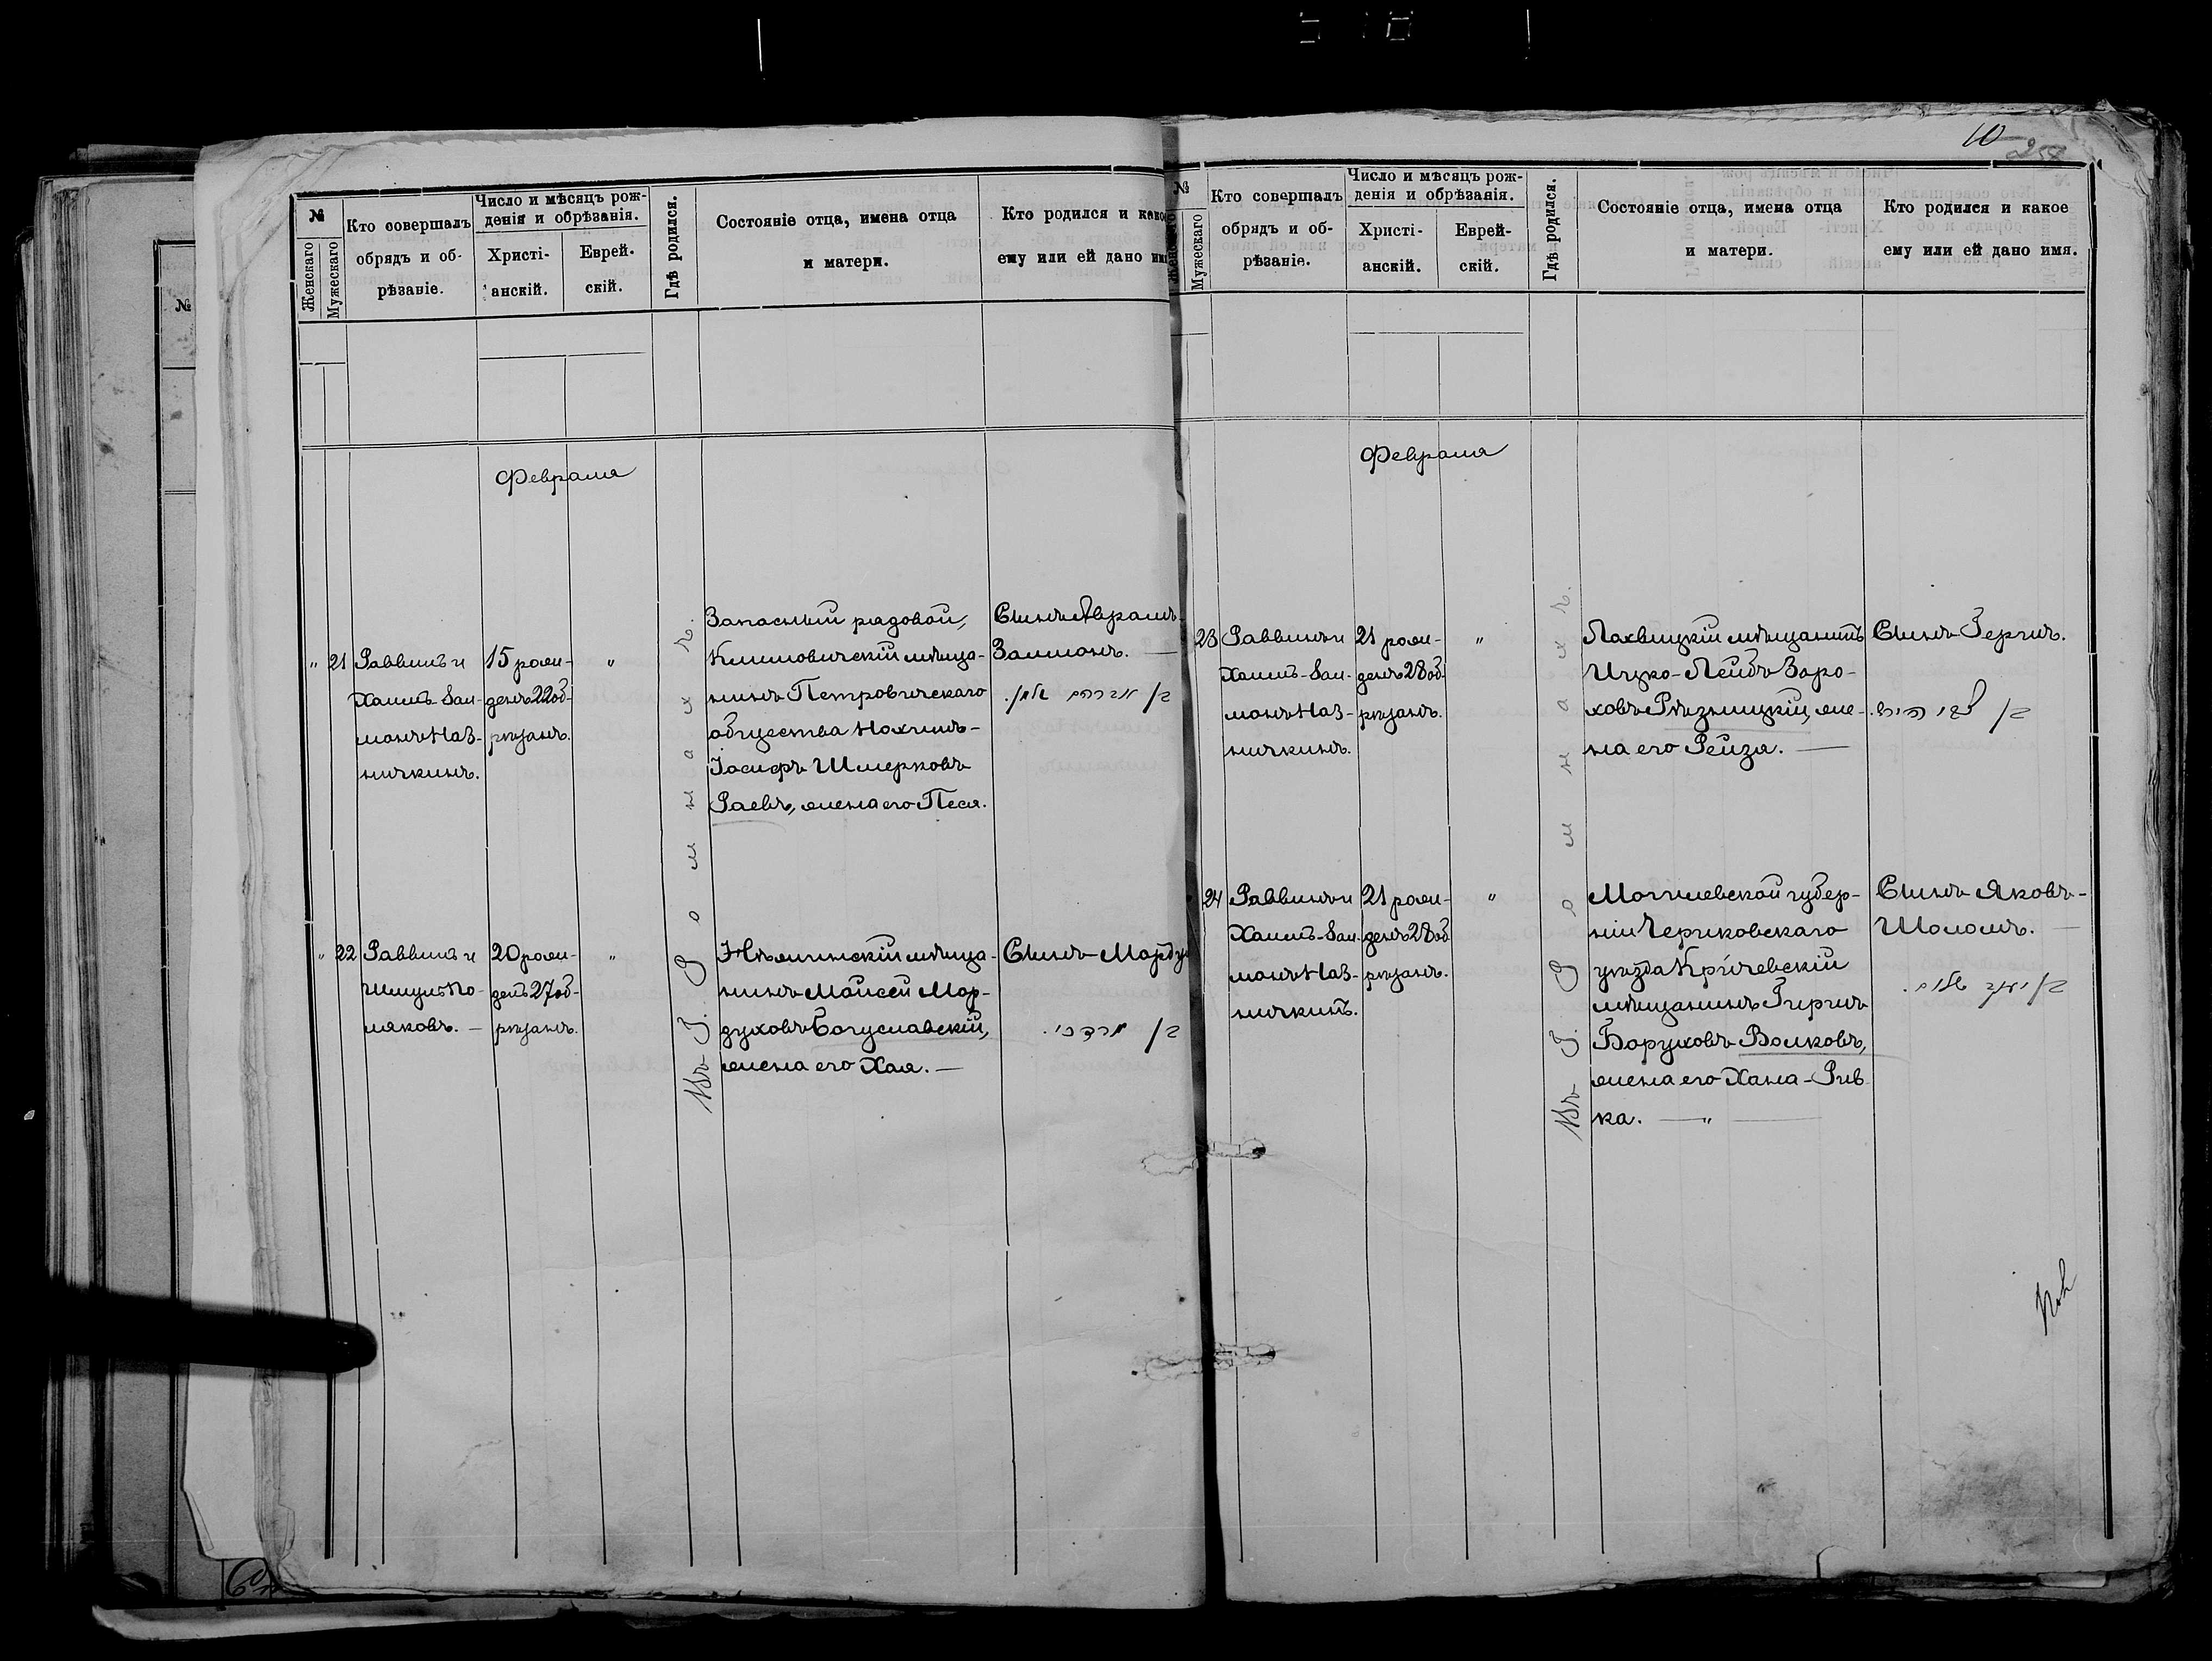 10
258
№
Женскаго
Мужескаго
Кто совершалъ
обрядъ и об-
рѣзаніе.
Число и мѣсяцъ рож-
денія и обрѣзанія.
Христі-
анскій.
Еврей-
скій.
Гдѣ родился.
Состояніе отца, имена отца
и матери.
Кто родился и какое
ему или ей дано имя
Февраля
" 21
Раввинъ и
Хаимъ-Зал-
монъ Наз-
ничкинъ.
15 рож-
денъ 22 об-
рѣзанъ.
"
Запасный рядовой,
Климовичскій мѣща-
нинъ Петровичскаго
общества Нохимъ-
Іосифъ Шмерковъ
Раевъ, жена его Песя.
Сынъ Абрамъ-
Залмонъ. —
ק/ אברהם זלמן.
" 22
Раввинъ и
Шмуль По-
ляковъ. —
20 рож-
денъ 27 об-
рѣзанъ.
"
Нѣжинскій мѣща-
нинъ Моисей Мор-
духовъ Богуславскій,
жена его Хая. —
Сынъ Мордух
ק/ מרדכי.
Въ г. Ромнахъ.
№
Женскаго
Мужескаго
Кто совершалъ
обрядъ и об-
рѣзаніе.
Число и мѣсяцъ рож-
денія и обрѣзанія.
Христі-
анскій.
Еврей-
скій.
Гдѣ родился.
Состояніе отца, имена отца
и матери.
Кто родился и какое
ему или ей дано имя.
Февраля
23
Раввинъ и
Хаимъ-Зал-
монъ Наз-
ничкинъ.
21 рож-
денъ 28 об-
рѣзанъ.
"
Лохвицкій мѣщанинъ
Ицко-Лейбъ Заро-
ховъ Рѣзницкій, же-
на его Рейза. —
Сынъ Герцъ.
24
Раввинъ и
Хаимъ-Зал-
монъ Наз-
ничкинъ.
21 рож-
денъ 28 об-
рѣзанъ.
"
Могилевской губер-
ніи Чериковскаго
уѣзда Кричевскій
мѣщанинъ Гиршъ
Боруховъ Волковъ,
жена его Хана-Рив-
ка. — " —
Сынъ Яковъ-
Шоломъ. —
ק/ יעקב שלום.
Въ г. Ромнахъ.